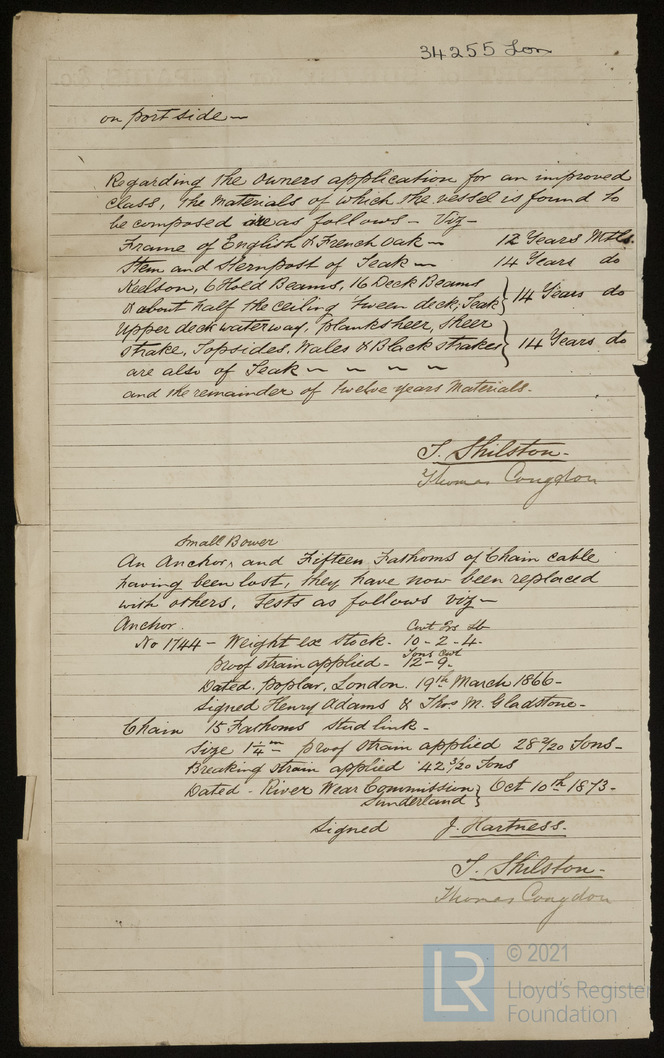 34255 Lon
on port side —
Regarding the owners application for an improved
class, the materials of which the vessel is found to
be composed are as follows — Viz —
Frame of English & French Oak — 12 Years Mtls.
Stem and Sternpost of Teak — 14 Years do
Keelson, 6 Hold Beams, 16 Deck Beams
& about half the ceiling 'tween deck, Teak } 14 Years do
Upper deck waterway, Planksheer, Sheer
strake, Topsides, Wales & Black strakes } 14 Years do
are also of Teak — — — —
and the remainder of twelve years Materials.
T. Shilston.
Thomas Congdon
Small Bower
An Anchor, and Fifteen Fathoms of Chain cable
having been lost, they have now been replaced
with others, Tests as follows viz —
Anchor. Cwt Qrs Lb
No 1744 — Weight ex Stock. 10 - 2 - 4.
Tons Cwt
proof strain applied - 12 - 9.
Dated. Poplar, London. 19th March 1866 -
Signed Henry Adams & Thos. M. Gladstone -
Chain 15 Fathoms Stud link -
Size 1 1/4 in proof strain applied 28 2/20 Tons -
Breaking strain applied 42 3/20 Tons
Dated - River Wear Commission } Oct 10th 1873 -
Sunderland
Signed J. Hartness.
T. Shilston -
Thomas Congdon
LR
© 2021
Lloyd's Register
Foundation